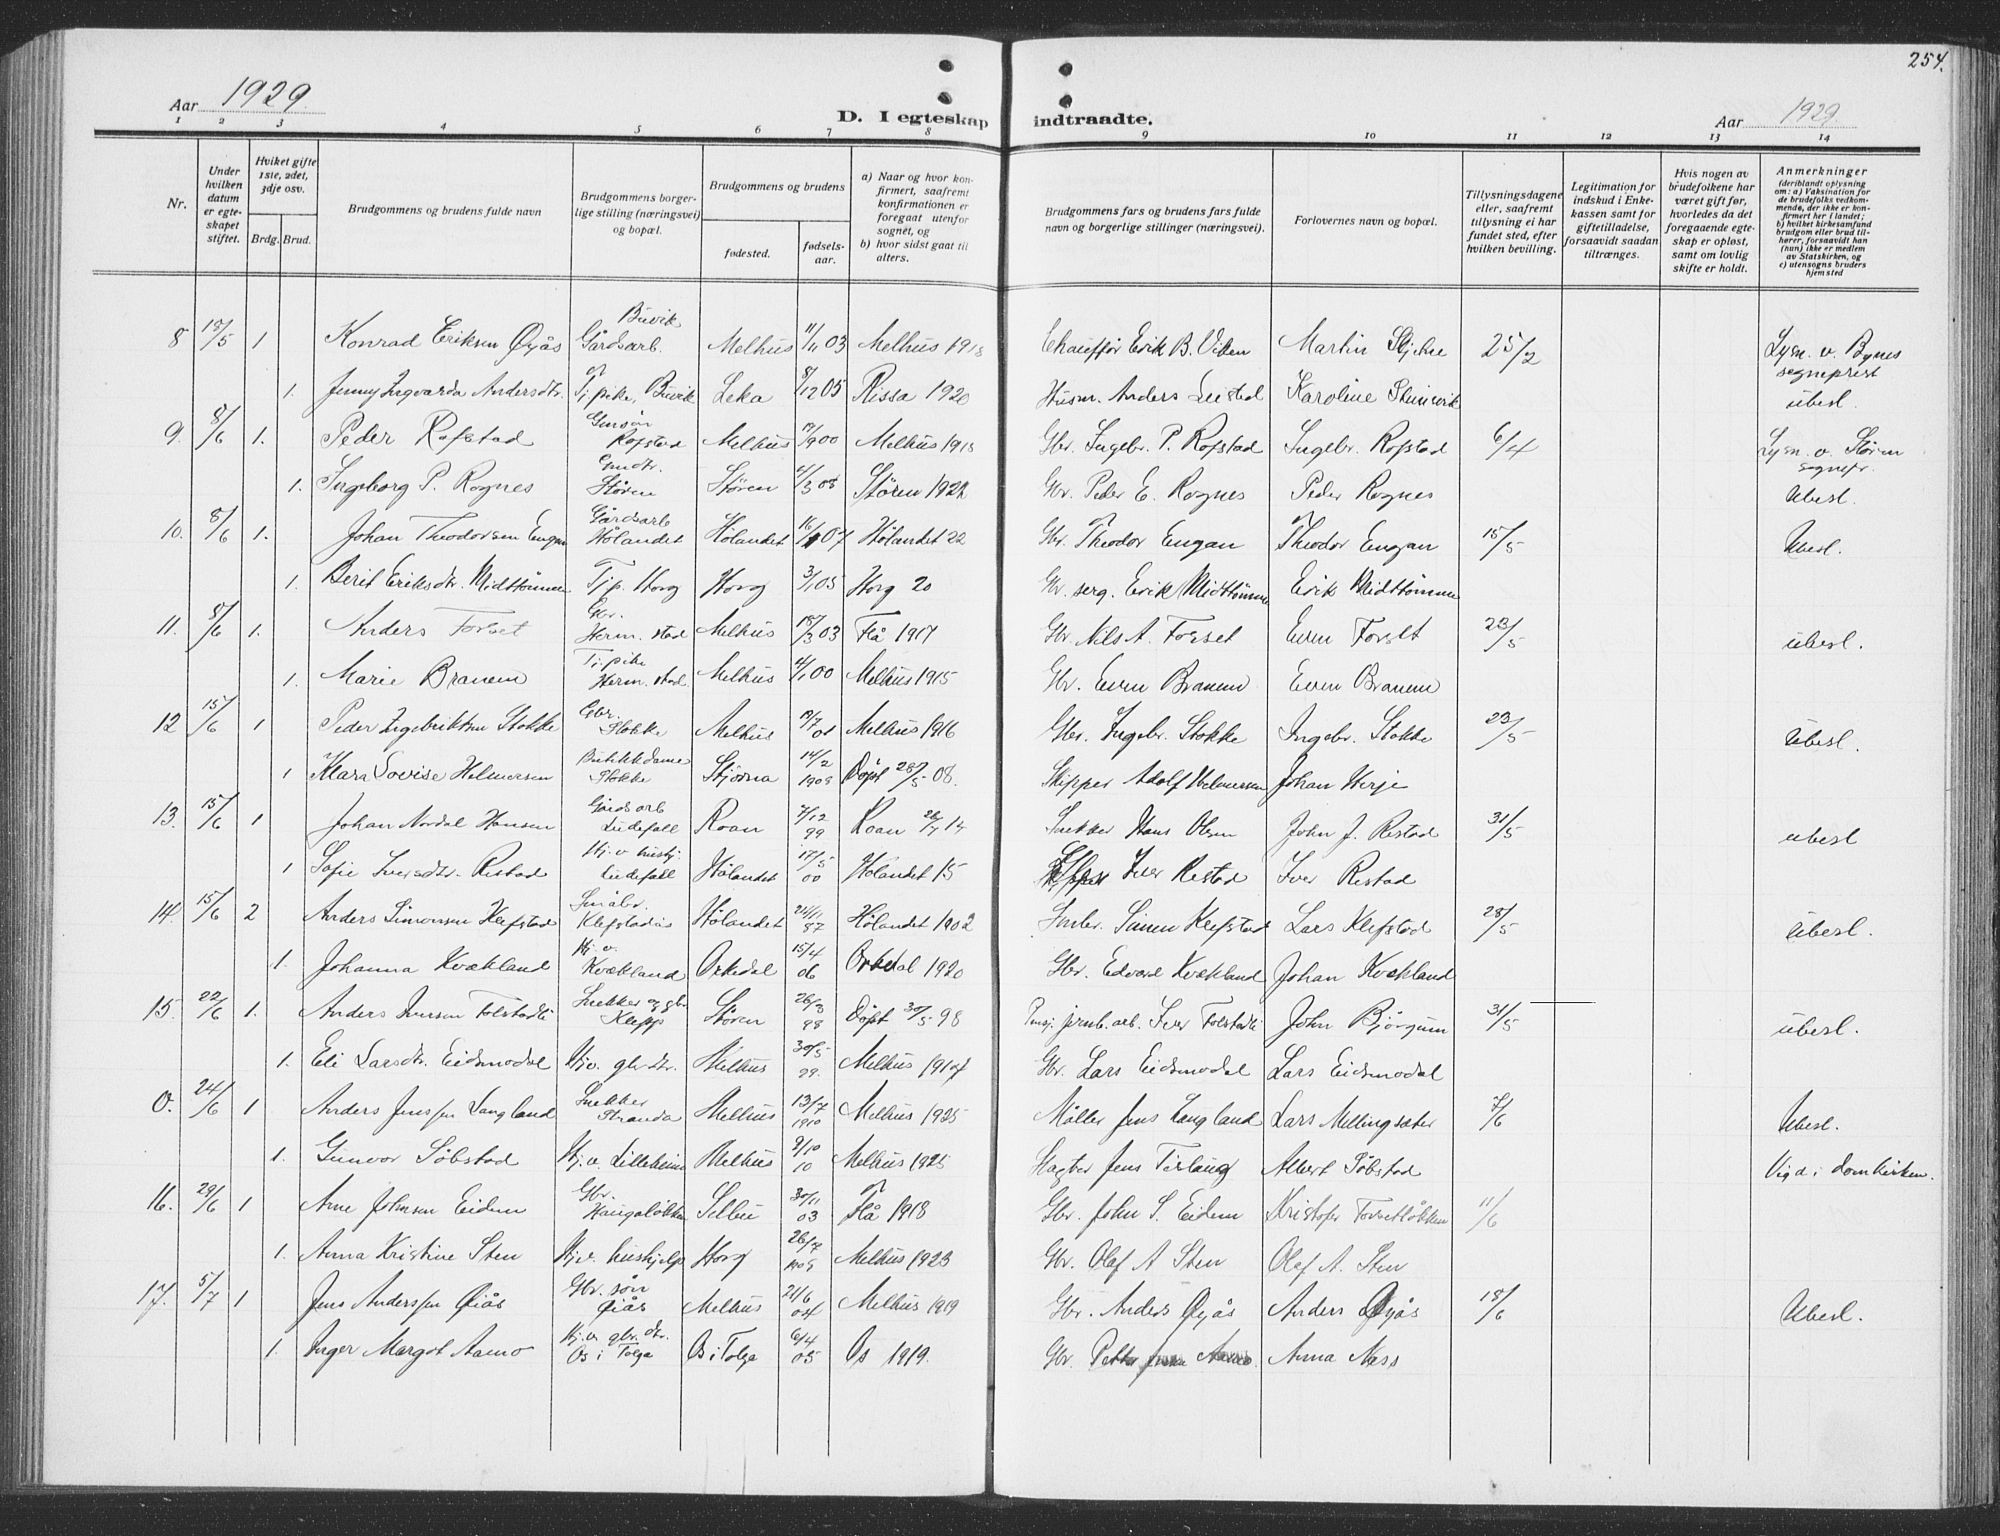 254.
Aar 1929
D. I egteskap indtraadte.
Aar 1929.
1 2 3 4 5 6 7 8 9 10 11 12 13 14
Nr.
Under hvilken datum er egteskapet stiftet.
Hvilket gifte 1ste, 2det, 3dje osv.
Brdg. Brud.
Brudgommens og brudens fulde navn
Brudgommens borgerlige stilling (næringsvei) og bopæl.
Brudgommens og brudens
fødested. fødselsaar.
a) Naar og hvor konfirmert, saafremt konfirmationen er foregaat utenfor sognet, og
b) hvor sidst gaat til alters.
Brudgommens fars og brudens fars fulde navn og borgerlige stillinger (næringsvei).
Forlovernes navn og bopæl.
Tillysningsdagene eller, saafremt tillysning ei har fundet sted, efter hvilken bevilling.
Legitimation for indskud i Enkekassen samt for giftetilladelse, forsaavidt saadan tiltrænges.
Hvis nogen av brudefolkene har været gift før, hvorledes da det foregaaende egteskap er opløst, samt om lovlig skifte er holdt.
Anmerkninger
(deriblandt oplysning om: a) Vaksination for de brudefolks vedkommende, der ikke er konfirmert her i landet; b) hvilket kirkesamfund brudgom eller brud tilhører, forsaavidt han (hun) ikke er medlem av Statskirken, og c) utensogns bruders hjemsted
8 18/5 1 Konrad Eriksen Øyås Buvik Gårdsarb. Melhus 11/11 03 Melhus 1918 Chauffør Erik B. Viken Martin Skjelne 25/2 Lysn. v. Bynes sogneprest
1. Jenny Ingvarda Andersdtr. Tj.pike, Buvik Leka 8/12 05 Rissa 1920 Husm. Anders Leistad Karoline Steinvik ubesl.
9. 8/6 1. Peder Rofstad Gbrsøn Rofstad Melhus 17/9 00 Melhus 1915 Gbr. Ingebr. P. Rofstad Ingebr. Rofstad 6/4 Lysn. v. Støren sognepr.
1. Ingeborg P. Rognes Støren Støren 4/3 08 Støren 1922 Gbr. Peder E. Rognes Peder Rognes Ubesl.
10. 8/6 1. Johan Theodorsen Engan Gårdsarb Hølandet Hølandet 16/1 07 Hølandet 22 Gbr. Theodor Engan Theodor Engan 15/5 Ubesl.
1. Berit Eriksdtr. Midttømme Tj.p. Horg Horg 3/1 05 Horg 20 Gbr. serg. Erik Midttømme Erik Midttømme
11. 8/6 1. Anders Forset Gbr. Herm. stad Melhus 18/3 03 Flå 1917 Gbr. Nils A. Forset Even Forset 23/5 ubesl.
1. Marie Branem Tj.pike Herm. stad Melhus 4/1 00 Melhus 1915 Gbr. Even Branem Even Branem
12 15/6 1 Peder Ingebriktsen Stokke Gbr. Stokke Melhus 19/7 01 Melhus 1916 Gbr. Ingebr. Stokke Ingebr. Stokke 23/5 Ubesl.
1 Klara Lovise Helmersen Butikkdame Stokke Stjørna 14/2 1908 Døpt 28/5 08. Skipper Adolf Helmersen Johan Herje
13. 15/6 1 Johan Nordal Hansen Gårdsarb Ludefall Roan 7/12 99 Roan 14 Snekker Hans Olsen John J. Ristad 31/5 ubesl
1 Sofie Iversdtr. Ristad Hj. v. huslj. Ludefall Hølandet 17/5 00 Hølandet 15 Iver Ristad Iver Ristad
14. 15/6 2 Anders Simonsen Klefstad Småbr. Klefstadås Hølandet 24/11 87 Hølandet 1902 Småbr. Simen Klefstad Lars Klefstad 28/5 Ubesl.
1. Johanna Kvækland Hj. v. Kvækland Orkedal 15/4 06 Orkedal 1920 Gbr. Edvard Kvækland Johan Kvækland
15. 22/6 1. Anders Iversen Folstadli Snekker og gbr. Klepp Støren 26/3 98 Døpt 30/5 98 Pensj. jernb. arb. Iver Folstadli John Bjørgum 31/5 ubesl.
1. Eli Larsdtr. Eidsmodal Hjv. gbr. dtr. Melhus 30/5 99. Melhus 1914 Gbr. Lars Eidsmodal Lars Eidsmodal
0. 24/6 1 Anders Jenssen Langland Snekker Stranda Melhus 13/7 1910 Melhus 1925 Møller Jens Langland Lars Mellingsæter 7/6 Ubesl.
1. Gunvor Søbstad Hj. v. Lilleheim Melhus 9/10 10 Melhus 1925 Albert Søbstad Vigd i Domkirken.
16. 29/6 1 Arne Johnsen Eidem Gbr. Haugaløkken Selbu 30/11 03 Flå 1918 Gbr. John S. Eidem Kristofer Forsetløkken 11/6
1. Anna Kristine Sten Hjv. hushjelp Horg 26/7 1905 Melhus 1923 Gbr. Olaf A Sten Olaf A. Sten
17. 5/7 1 Jens Anderssen Øiås Gbr. søn Øiås Melhus 21/6 04 Melhus 1919 Gbr. Anders Øyås Anders Øyås 18/6 Ubesl.
1. Inger Margot Aamo Hj.v. gbr. dtr. Os i Tolga Os i Tolga 6/4 05 Os 1919. Gbr. Petter Aamo Anna Næss